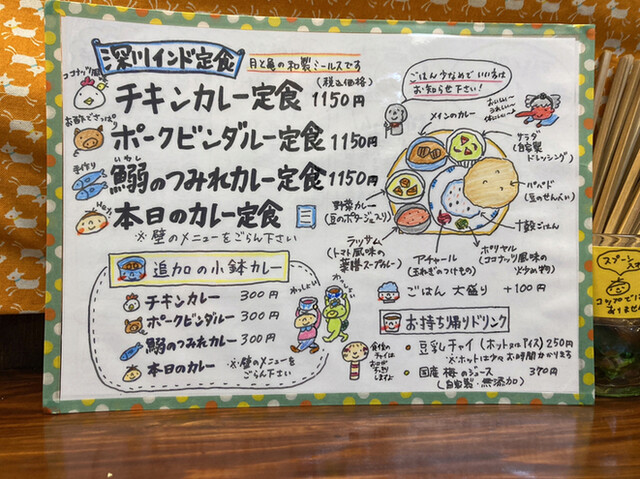 深川インド定食
月と亀の和製ミールスです
(税込価格)
ココナッツ風
チキンカレー定食 1150円
お酢でさっぱり
ポークビンダルー定食 1150円
手作り
いわし
鰯のつみれカレー定食 1150円
本日のカレー定食
※壁のメニューをごらん下さい
追加の小鉢カレー
チキンカレー 300円
ポークビンダルー 300円
鰯のつみれカレー 300円
本日のカレー
※壁のメニューを
ごらん下さい
わっしょい
わっしょい
ごはん少なめでいい方は
お知らせ下さい!
おいしい〜
うれしい〜
メインのカレー
サラダ
(自家製
ドレッシング)
パパド
(豆のせんべい)
野菜カレー
(豆のポタージュ入り)
十穀ごはん
ラッサム
(トマト風味の
薬膳スープカレー)
アチャール
(玉ねぎのつけもの)
ポリヤル
(ココナッツ風味の
炒め物)
ごはん 大盛り +100円
お持ち帰りドリンク
豆乳チャイ (ホットorアイス) 250円
※ホットは少々お時間かかります
国産 梅のジュース 370円
(自家製・無添加)
食後の
チャイは
スプーン
コップで
ありませ